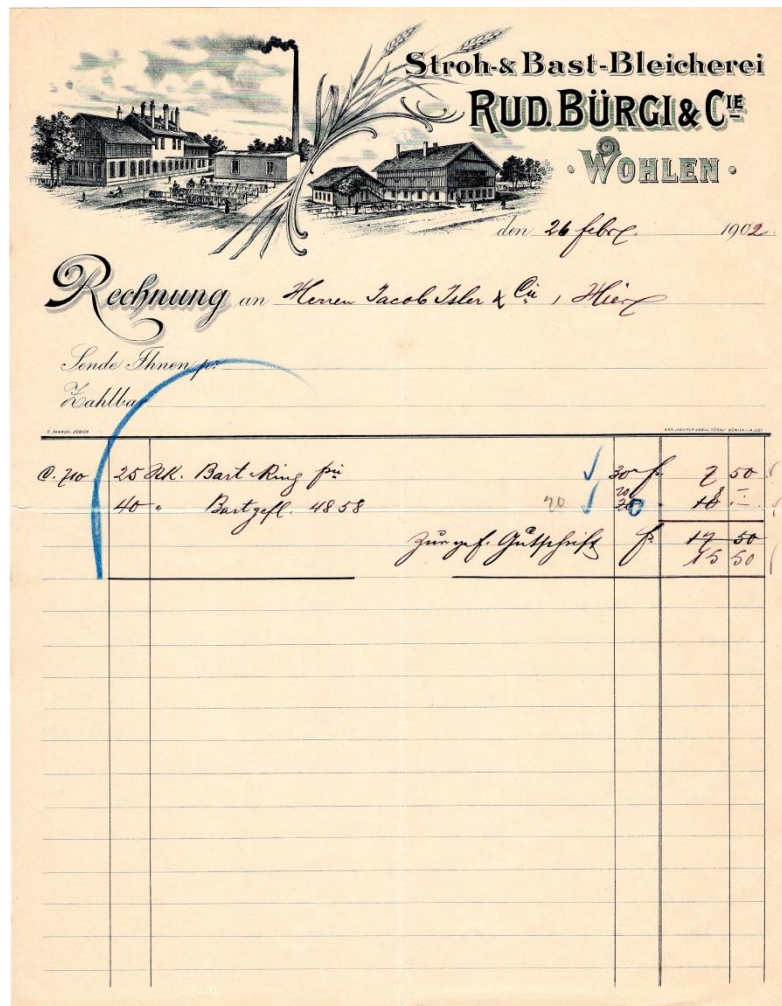 Stroh- & Bast-Bleicherei
RUD. BÜRGI & CIE
· WOHLEN ·
den 26 febr. 1902.
Rechnung an Herren Jacob Isler & Cie, Hier
Sende Ihnen pr.
Zahlbar
C. 710 25 Bast Ring 30 f. 7 50
40 " Bastgefl. 4858 20 20 8 –
Zur gef. Gutschrift f. 17 50
15 50